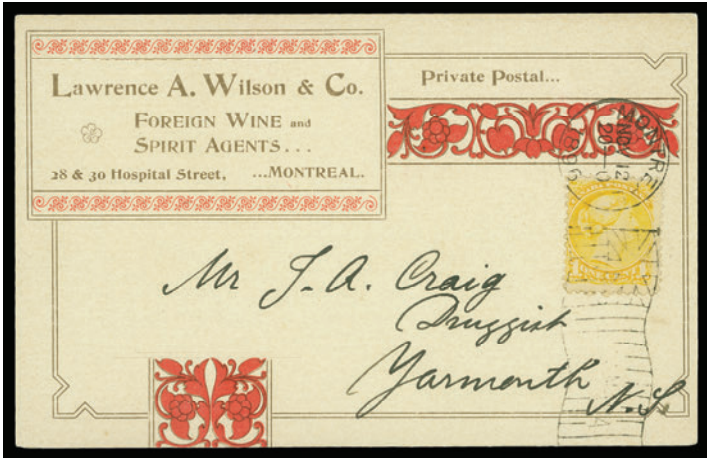 Lawrence A. Wilson & Co.
Foreign Wine and
Spirit Agents...
28 & 30 Hospital Street, ...Montreal.
Private Postal...
MONTRE
12
20 0
1896
Mr J. A. Craig
Druggist
Yarmouth
N.S